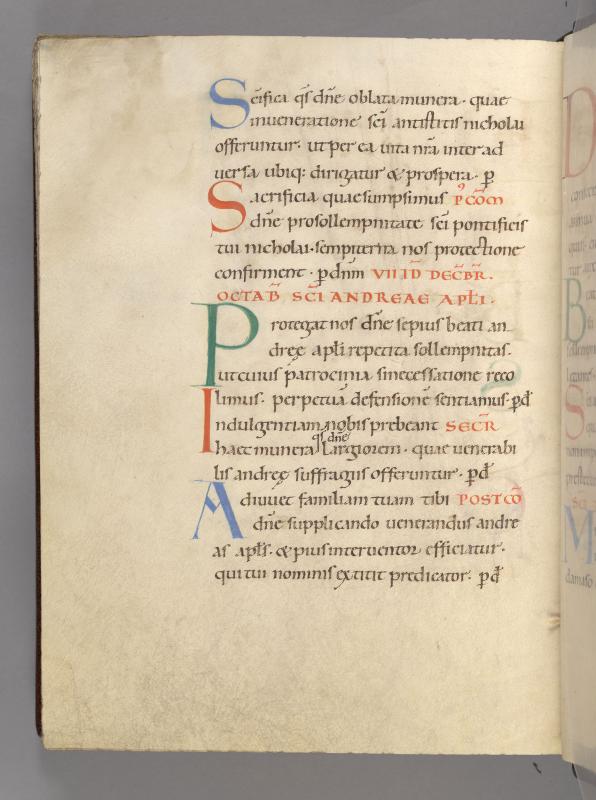 Sc̄ifica q̄s dn̄e oblata munera · quae
inueneratione sc̄i antistitis nicholai
offeruntur · ut per ea uita nr̄a inter ad
uersa ubiq: dirigatur & prospera · p̄
Sacrificia quae sumpsimus P̄COM̄
dn̄e pro sollempnitate sc̄i pontificis
tui nicholai · sempiterna nos protectione
confirment · p̄ dnm̄ VII ID̄ DECB̄R̄ ·
OCTAB̄ SC̄I ANDREAE APL̄I ·
Protegat nos dn̄e sepius beati an
dreę apl̄i repetita sollempnitas ·
ut cuius patrocinia sine cessatione reco
limus · perpetuā defensionē sentiamus · p̄d
Indulgentiam nobis prebeant SECR̄
haec munera q̄s dn̄e largiorem · quae uenerabi
lis andreę suffragiis offeruntur · p̄d
Adiuuet familiam tuam tibi POSTCŌ
dn̄e supplicando uenerandus andre
as apl̄s · & pius interuentor efficiatur ·
qui tui nominis extitit predicator · p̄d
D
B
S
M
damaso